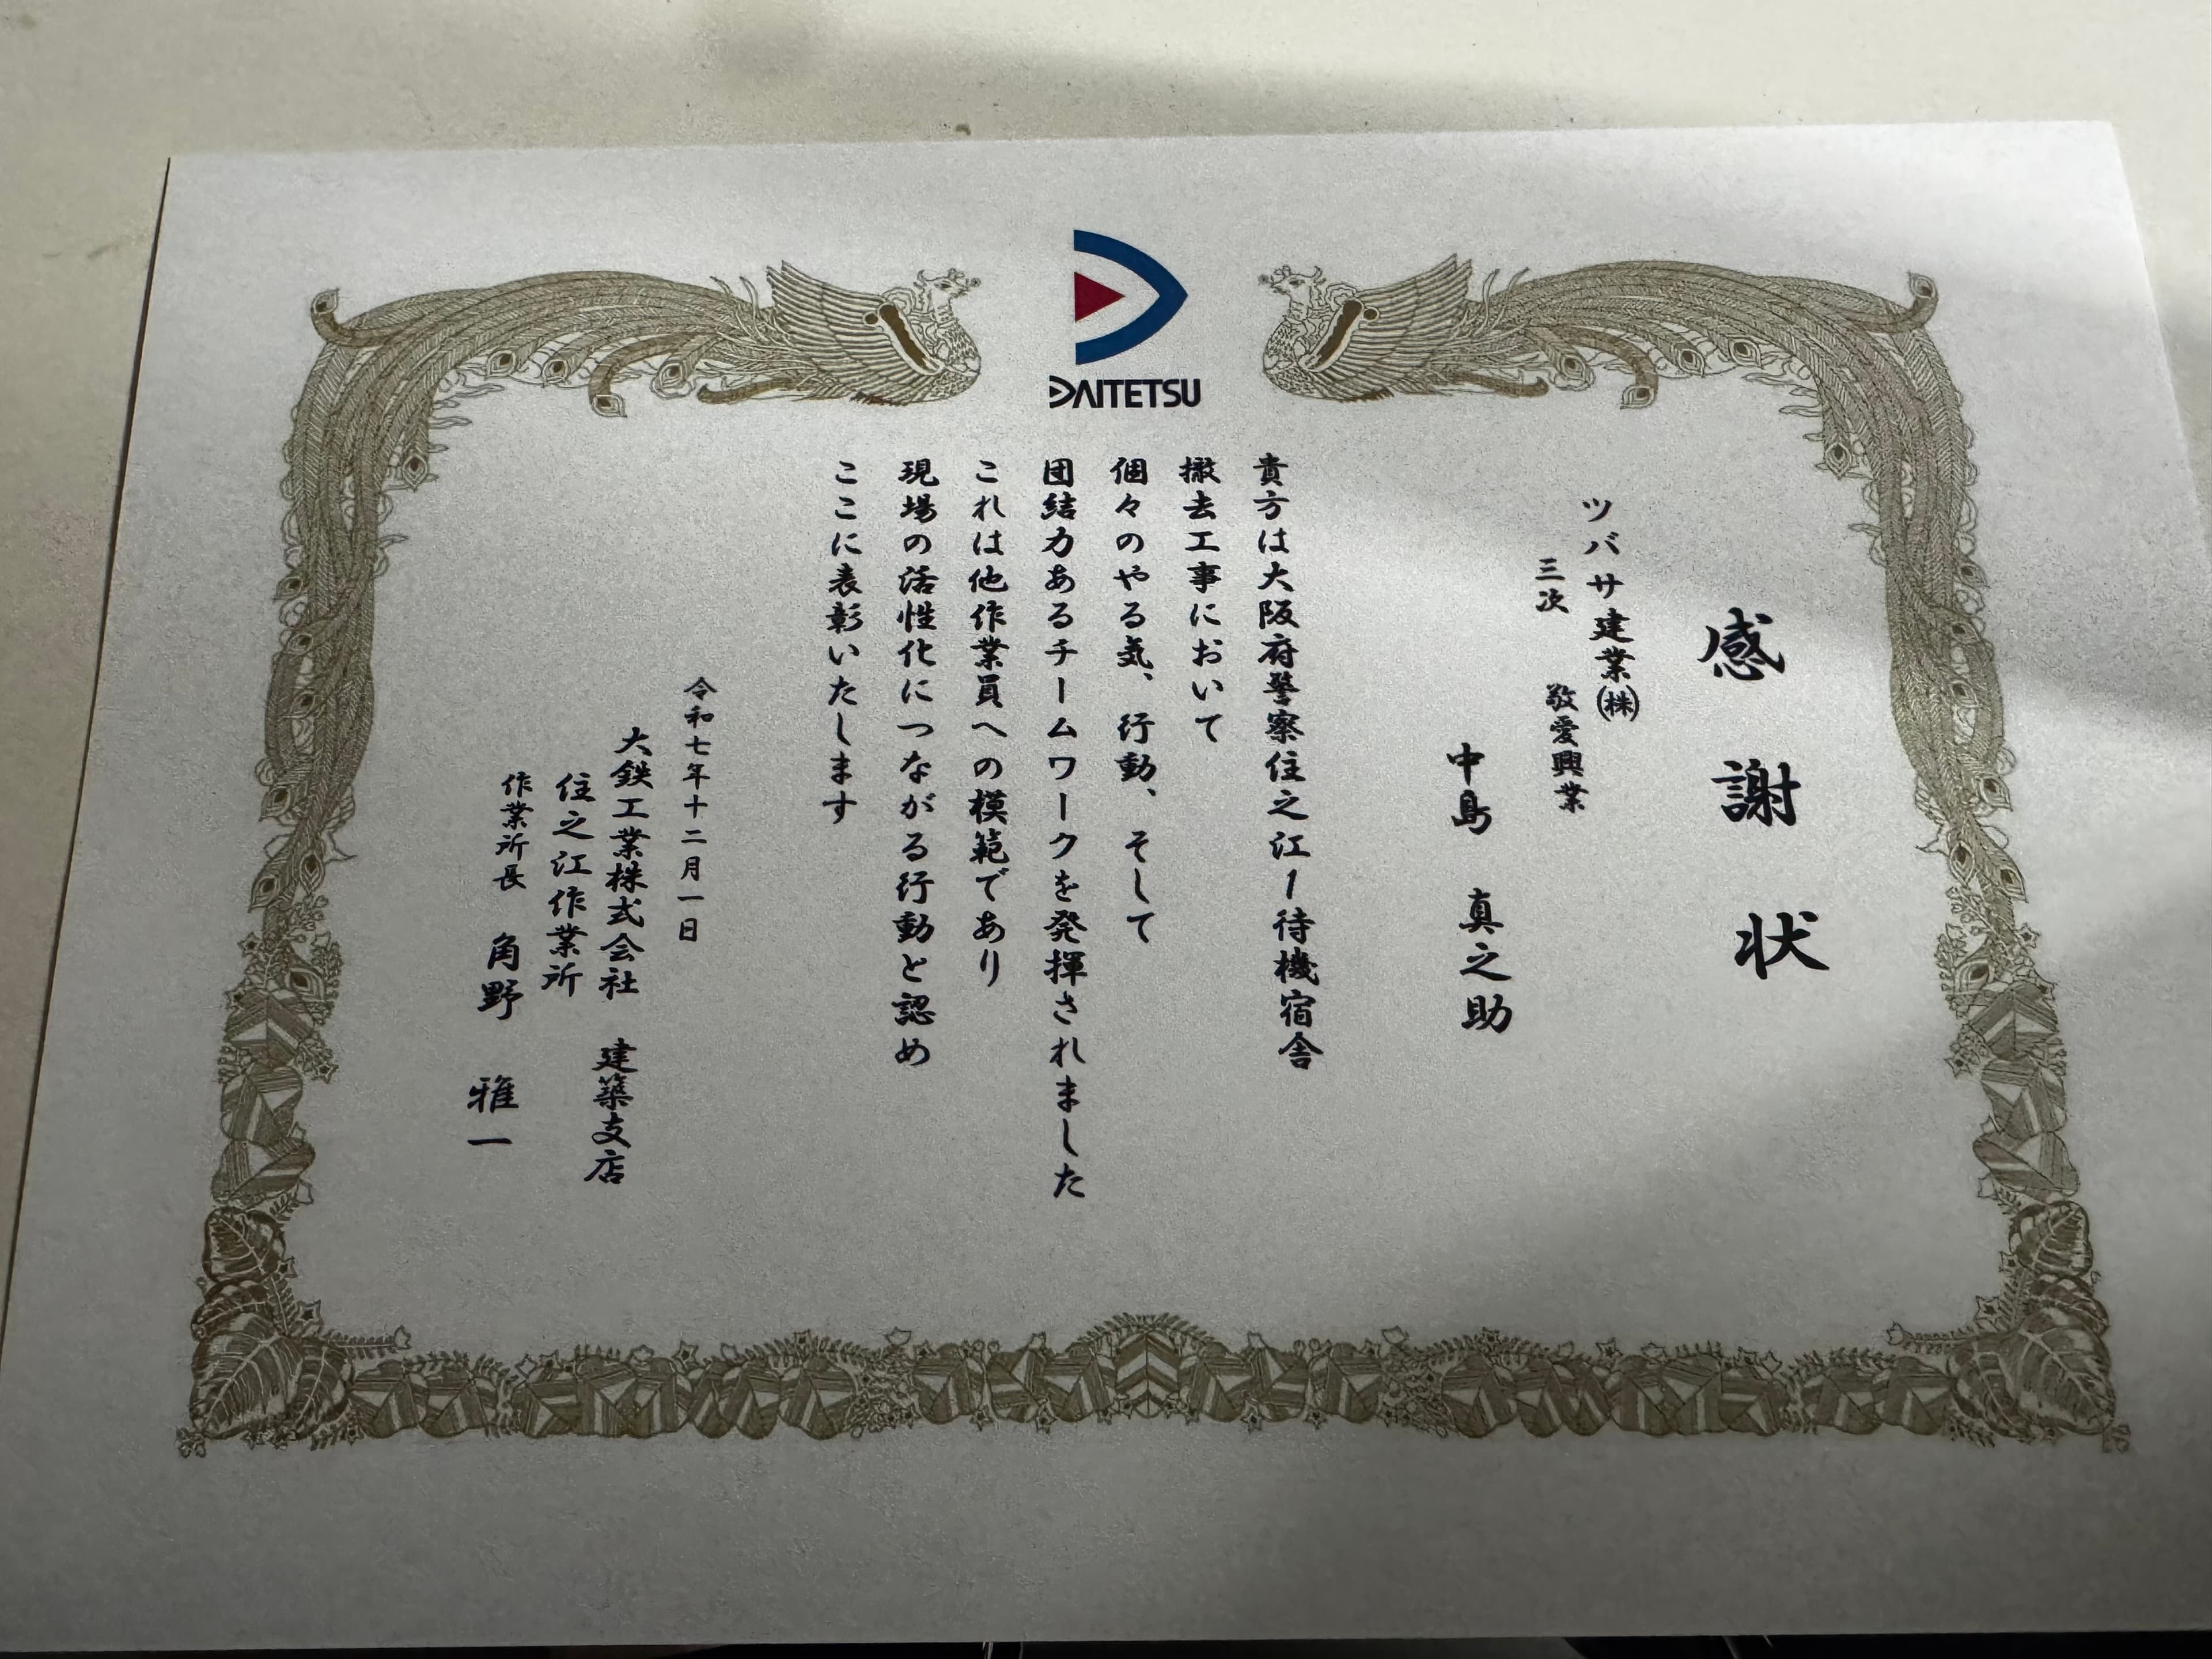 DAITETSU
感謝状
ツバサ建業㈱
三次 敬愛興業
中島 真之助
貴方は大阪府警察住之江1待機宿舎
撤去工事において
個々のやる気、行動、そして
団結力あるチームワークを発揮されました
これは他作業員への模範であり
現場の活性化につながる行動と認め
ここに表彰いたします
令和七年十二月一日
大鉄工業株式会社 建築支店
住之江作業所
作業所長 角野 雅一